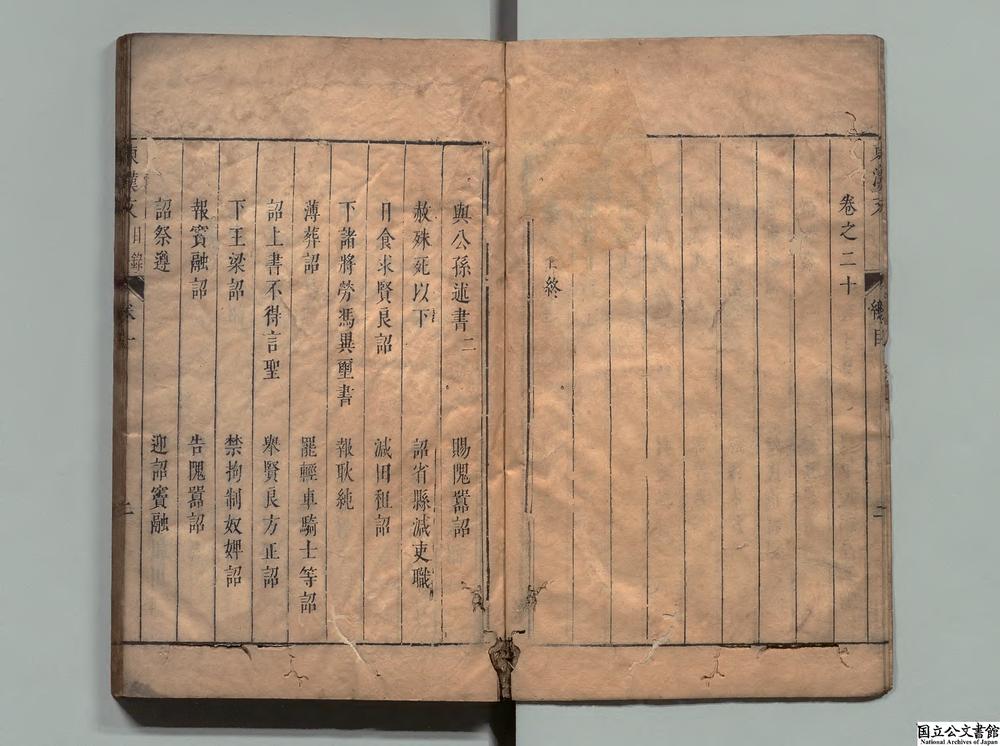 卷之二十
終
總目
二
與公孫述書二
賜隗囂詔
赦殊死以下
詔省縣減吏職
日食求賢良詔
減田租詔
下諸將勞馮異璽書
報耿純
薄葬詔
罷輕車騎士等詔
詔上書不得言聖
舉賢良方正詔
下王梁詔
禁拘制奴婢詔
報竇融詔
告隗囂詔
詔祭遵
迎詔竇融
東漢文
目錄
卷一
二
国立公文書館
National Archives of Japan